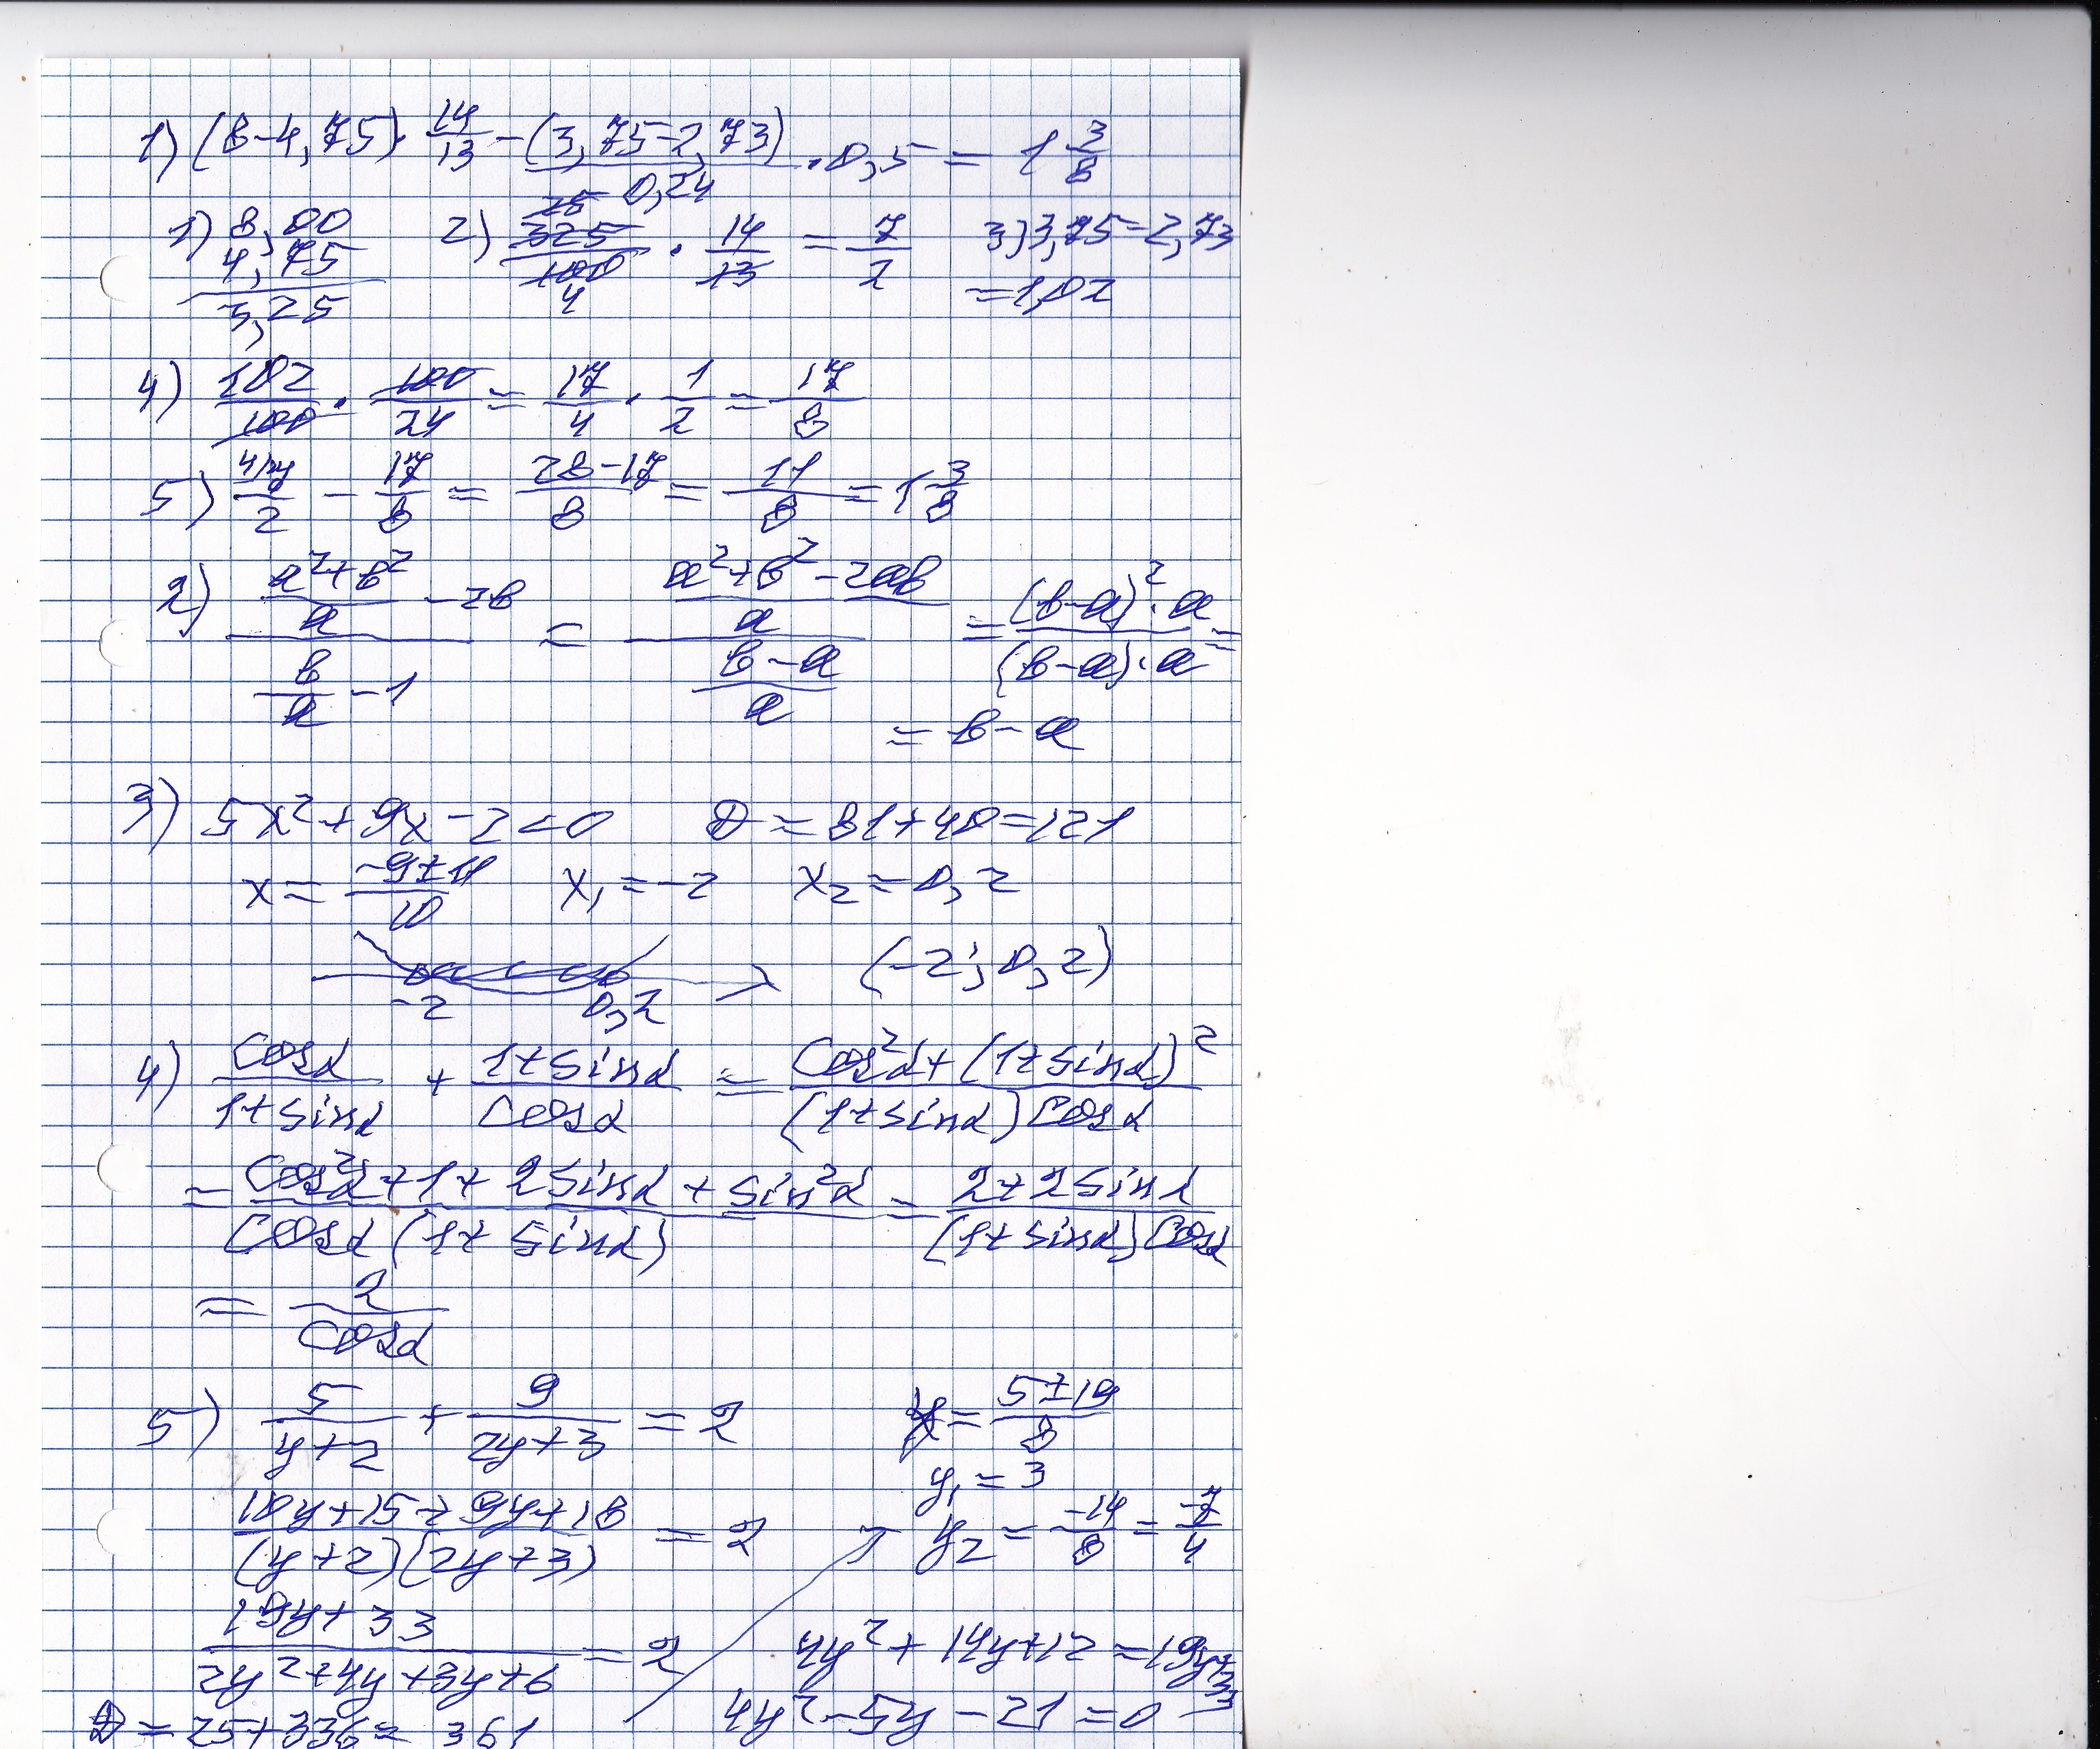 1) (8-4,75)·14/13-(3,75-2,73)/0,24·0,5=1 3/8
1) 8,00 2) 325/100·14/13=7/2 3) 3,75-2,73
4,75 25 4 =1,02
3,25
4) 102/100·100/24=17/4·1/2=17/8
5) 7/2-17/8=(28-17)/8=11/8=1 3/8
2) ((a²+b²)/a-2b)/(b/a-1)=((a²+b²-2ab)/a)/((b-a)/a)=((b-a)²·a)/((b-a)·a)=
=b-a
3) 5x²+9x-2<0 D=81+40=121
x=(-9±11)/10 x₁=-2 x₂=0,2
-2 0,2 (-2;0,2)
4) cosα/(1+sinα)+(1+sinα)/cosα=(cos²α+(1+sinα)²)/((1+sinα)cosα)
=(cos²α+1+2sinα+sin²α)/(cosα(1+sinα))=(2+2sinα)/((1+sinα)cosα)
=2/cosα
5) 5/(y+2)+9/(2y+3)=2
(10y+15+9y+18)/((y+2)(2y+3))=2
(19y+33)/(2y²+4y+3y+6)=2
4y²+14y+12=19y+33
4y²-5y-21=0
D=25+336=361
y=(5±19)/8
y₁=3
y₂=-14/8=-7/4